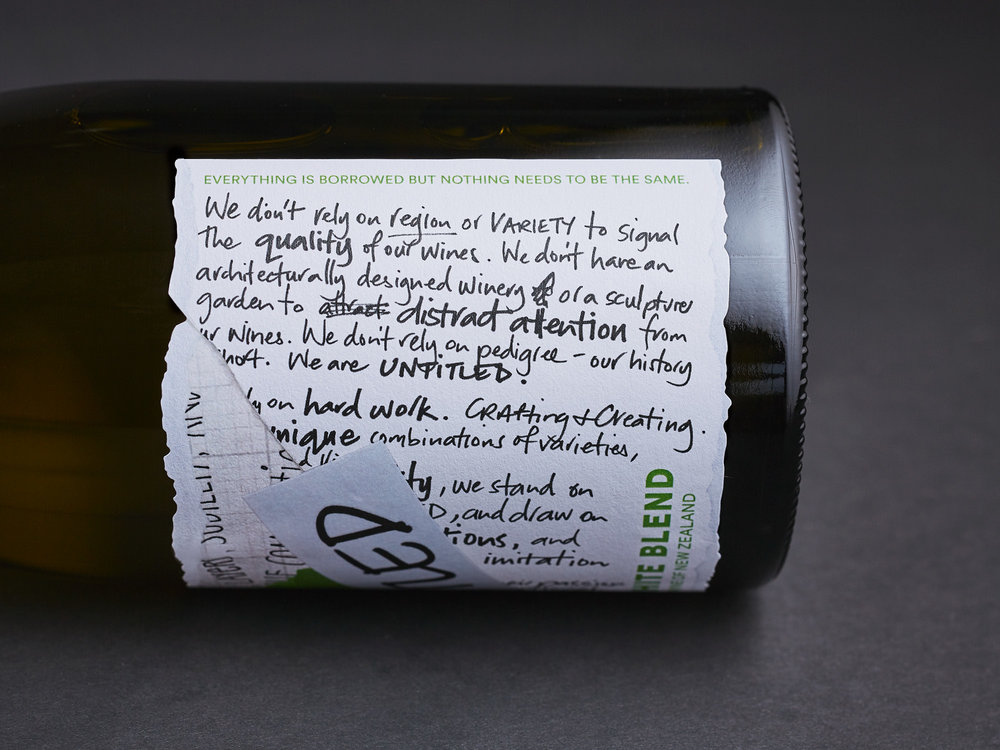 EVERYTHING IS BORROWED BUT NOTHING NEEDS TO BE THE SAME.
We don't rely on region or VARIETY to signal
the quality of our wines. We don't have an
architecturally designed winery or a sculpture
garden to distract attention from
ur wines. We don't rely on pedigree - our history
short. We are UNTITLED.
ly on hard work. CRAfting & Creating.
unique combinations of varieties,
ity, we stand on
ED, and draw on
tions, and
imitation
HITE BLEND
NEW ZEALAND